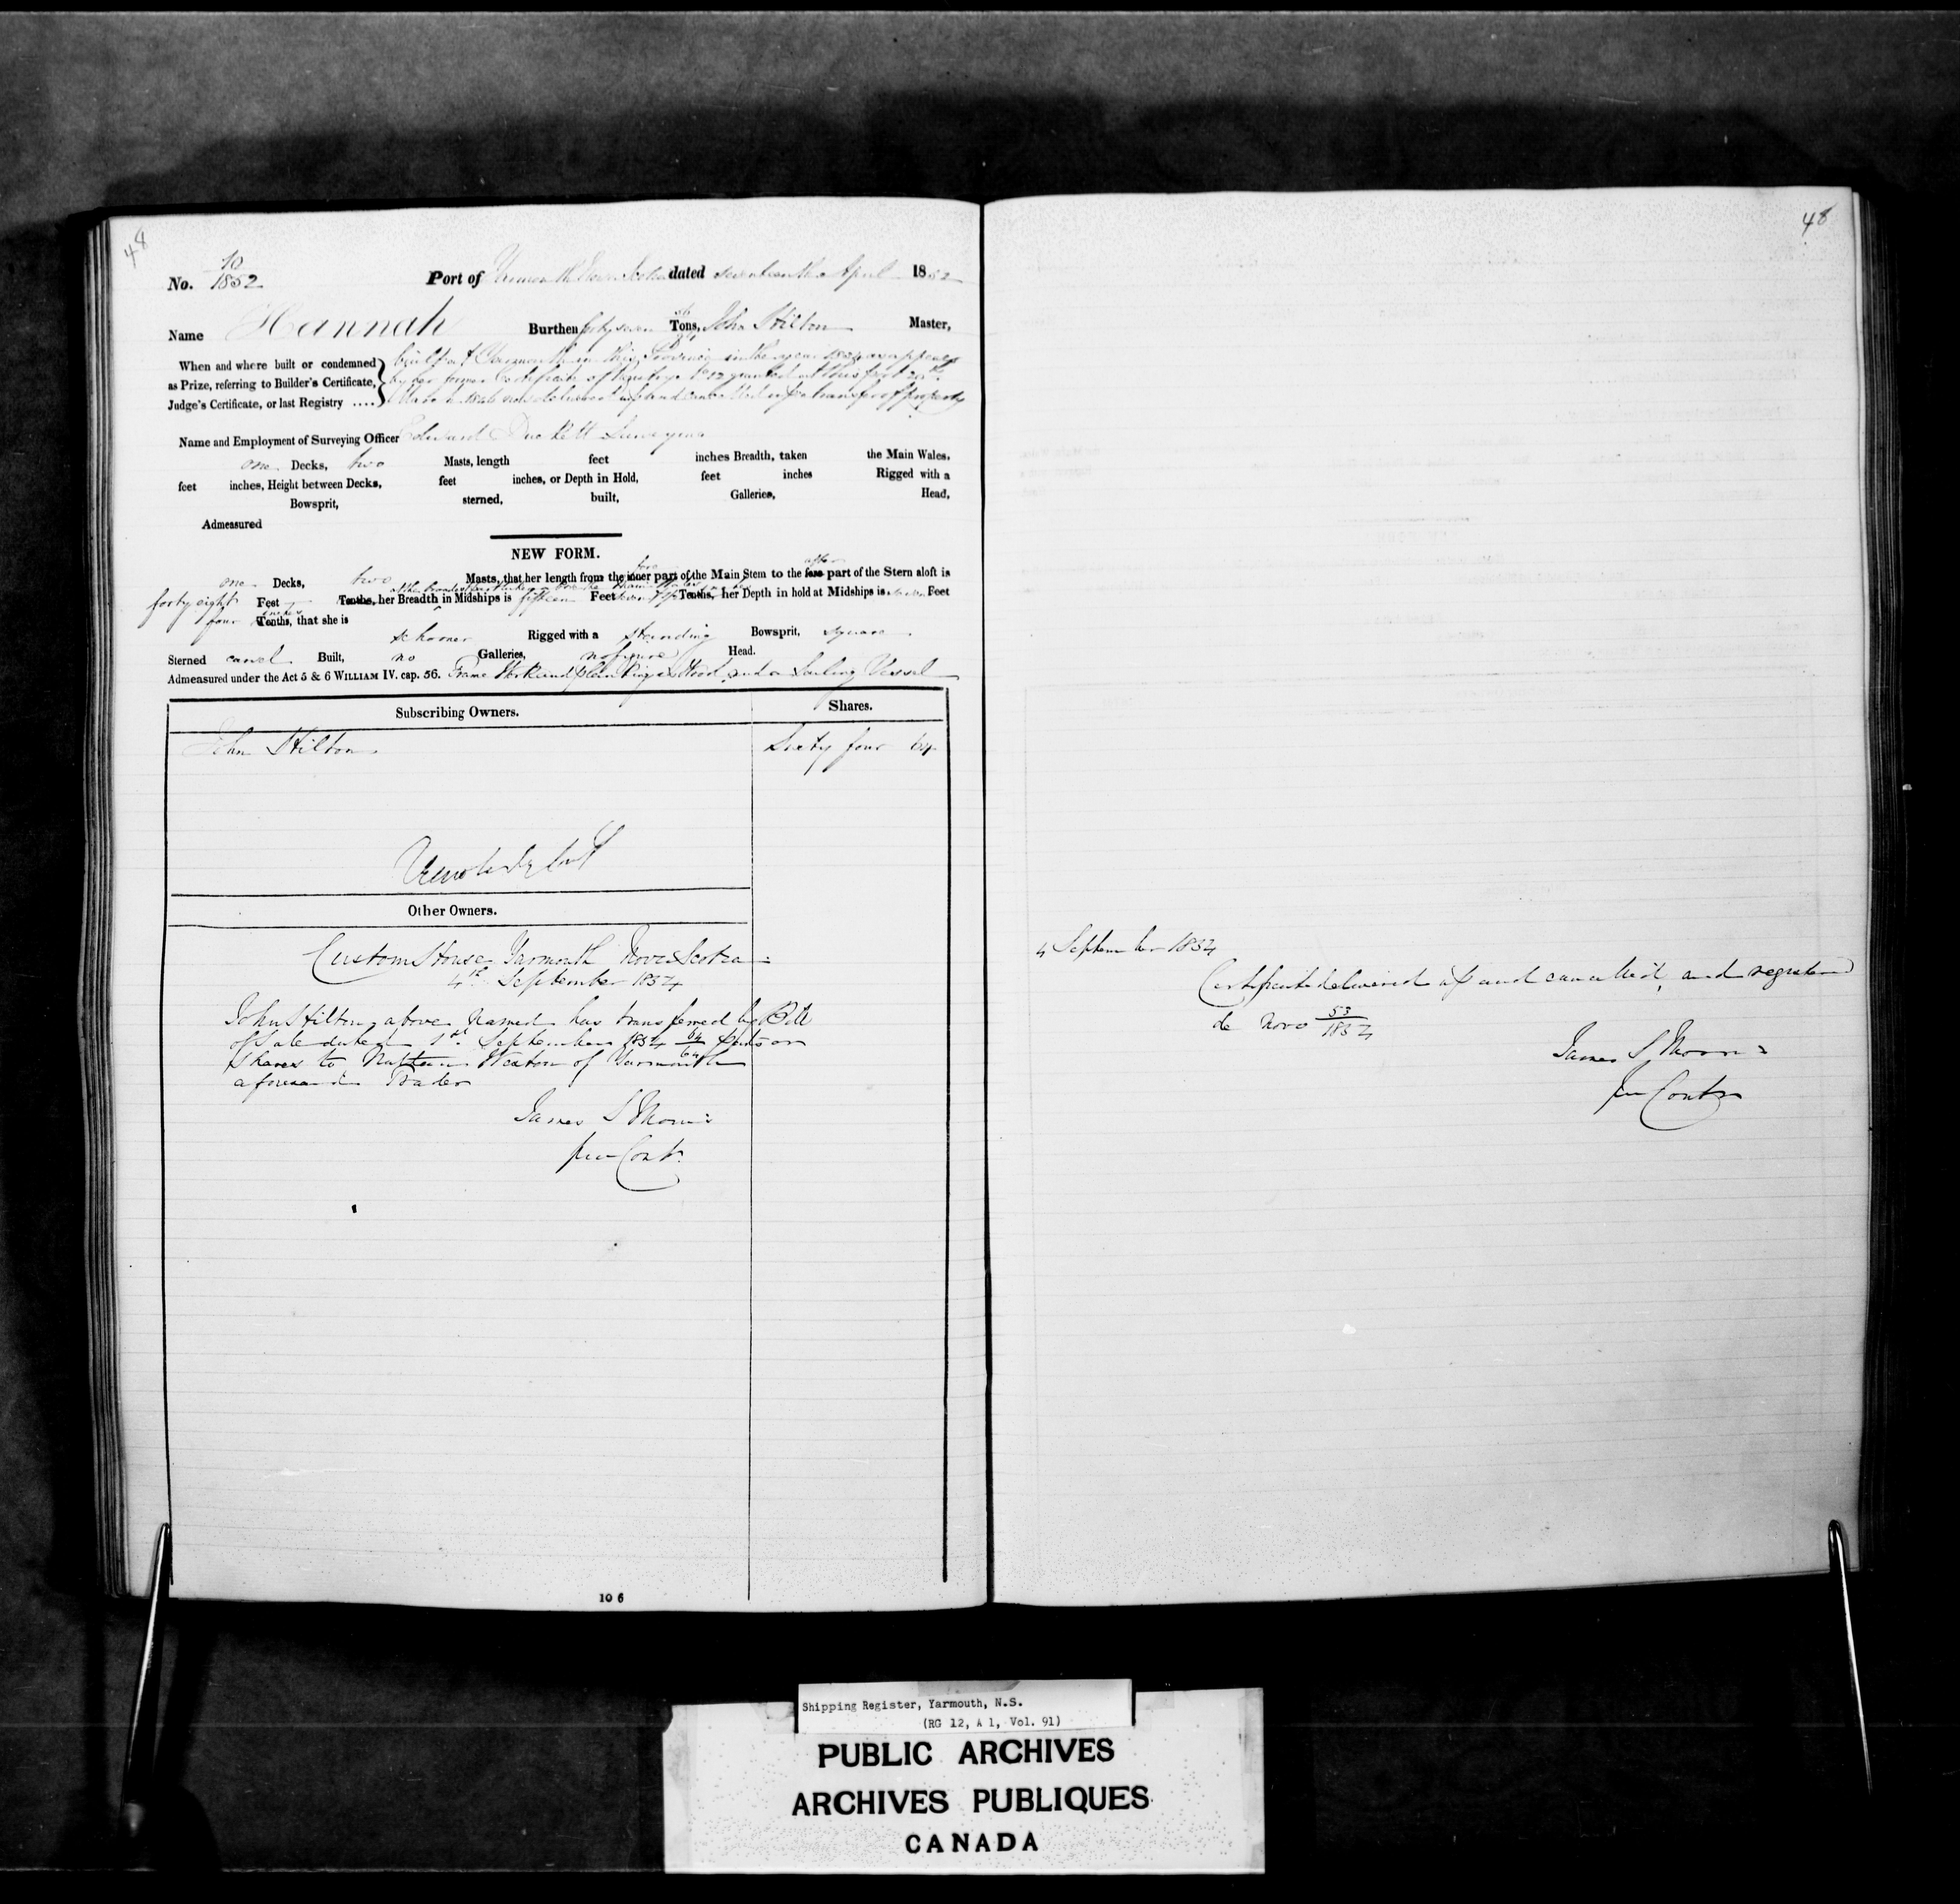 48
No. 10/1852 Port of Yarmouth Nova Scotia dated seventeenth April 1852
Name Hannah Burthen forty seven Tons, John Hilton Master,
When and where built or condemned
as Prize, referring to Builder's Certificate,
Judge's Certificate, or last Registry ....
built at Yarmouth in this Province in the year as appears
by her former Certificate of Registry No 12 granted at this port
delivered up and cancelled transfer of property
Name and Employment of Surveying Officer Edward Surveyor
one Decks, two Masts, length feet inches Breadth, taken the Main Wales.
feet inches, Height between Decks, feet inches, or Depth in Hold, feet inches Rigged with a
Bowsprit, sterned, built, Galleries, Head,
Admeasured
NEW FORM.
one Decks, two Masts, that her length from the inner fore part of the Main Stem to the fore after part of the Stern aloft is
forty eight Feet Tenths, her Breadth in Midships is fifteen Feet Tenths, her Depth in hold at Midships is seven Feet
four inches Tenths, that she is
schooner Rigged with a standing Bowsprit, square
Sterned carvel Built, no Galleries, no figure Head.
Admeasured under the Act 5 & 6 WILLIAM IV. cap. 56. Frame Work and planking is Wood, and a Sailing Vessel
Subscribing Owners. Shares.
John Hilton Sixty four 64
Other Owners.
Custom House Yarmouth Nova Scotia
4th September 1854
John Hilton above Named has transferred by Bill
of Sale dated 1st September 1854 64/64 parts or
Shares to Nathan Weston of Yarmouth
aforesaid Trader
James S Morris
Contr
10 6
48
4 September 1854
Certificate delivered up and cancelled, and registered
de Novo 53/1854
James S Morris
Contr
Shipping Register, Yarmouth, N.S.
(RG 12, A 1, Vol. 91)
PUBLIC ARCHIVES
ARCHIVES PUBLIQUES
CANADA